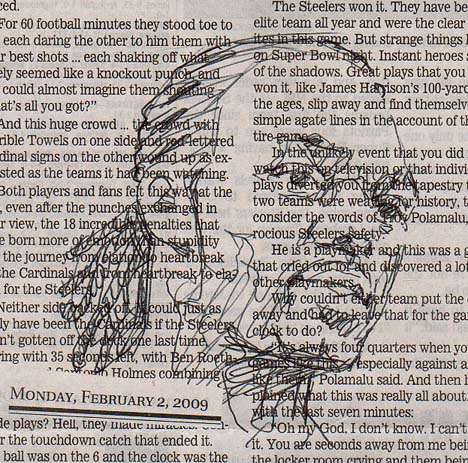 ced.
For 60 football minutes they stood toe to
each daring the other to hit them with
r best shots ... each shaking off what
ely seemed like a knockout punch, and
could almost imagine them shouting
at's all you got?"
And this huge crowd ... the crowd with
rible Towels on one side and red-lettered
dinal signs on the other wound up as ex-
sted as the teams it had been watching.
Both players and fans felt this way at the
, even after the punches exchanged in
r view, the 18 incredible penalties that
e born more of emotion than stupidity
the journey from to heartbreak
the Cardinals and from heartbreak to ela-
for the Steelers.
Neither side backed off. It could just as
ly have been the Cardinals if the Steelers
n't gotten off the deck one last time,
ring with 35 seconds left, with Ben Roeth-
Holmes combining
MONDAY, FEBRUARY 2, 2009
de plays? Hell, they made miracles.
r the touchdown catch that ended it.
ball was on the 6 and the clock was the
The Steelers won it. They have bee
elite team all year and were the clear
ites in this game. But strange things h
on Super Bowl night. Instant heroes s
of the shadows. Great plays that you
won it, like James Harrison's 100-yard
the ages, slip away and find themselve
simple agate lines in the account of th
tire game.
In the unlikely event that you did
watch this on television or that indivi
plays diverted you from the tapestry t
two teams were weaving for history, t
consider the words of Troy Polamalu,
rocious Steelers safety.
He is a playmaker and this was a g
that cried out for and discovered a lot
other playmakers.
Why couldn't either team put the
away and had to leave that for the ga
clock to do?
"It's always four quarters when yo
games like this, especially against a
like them," Polamalu said. And then h
plained what this was really all about.
with the last seven minutes:
"Oh my God. I don't know. I can't
it. You are seconds away from me bein
the locker room crying and them being